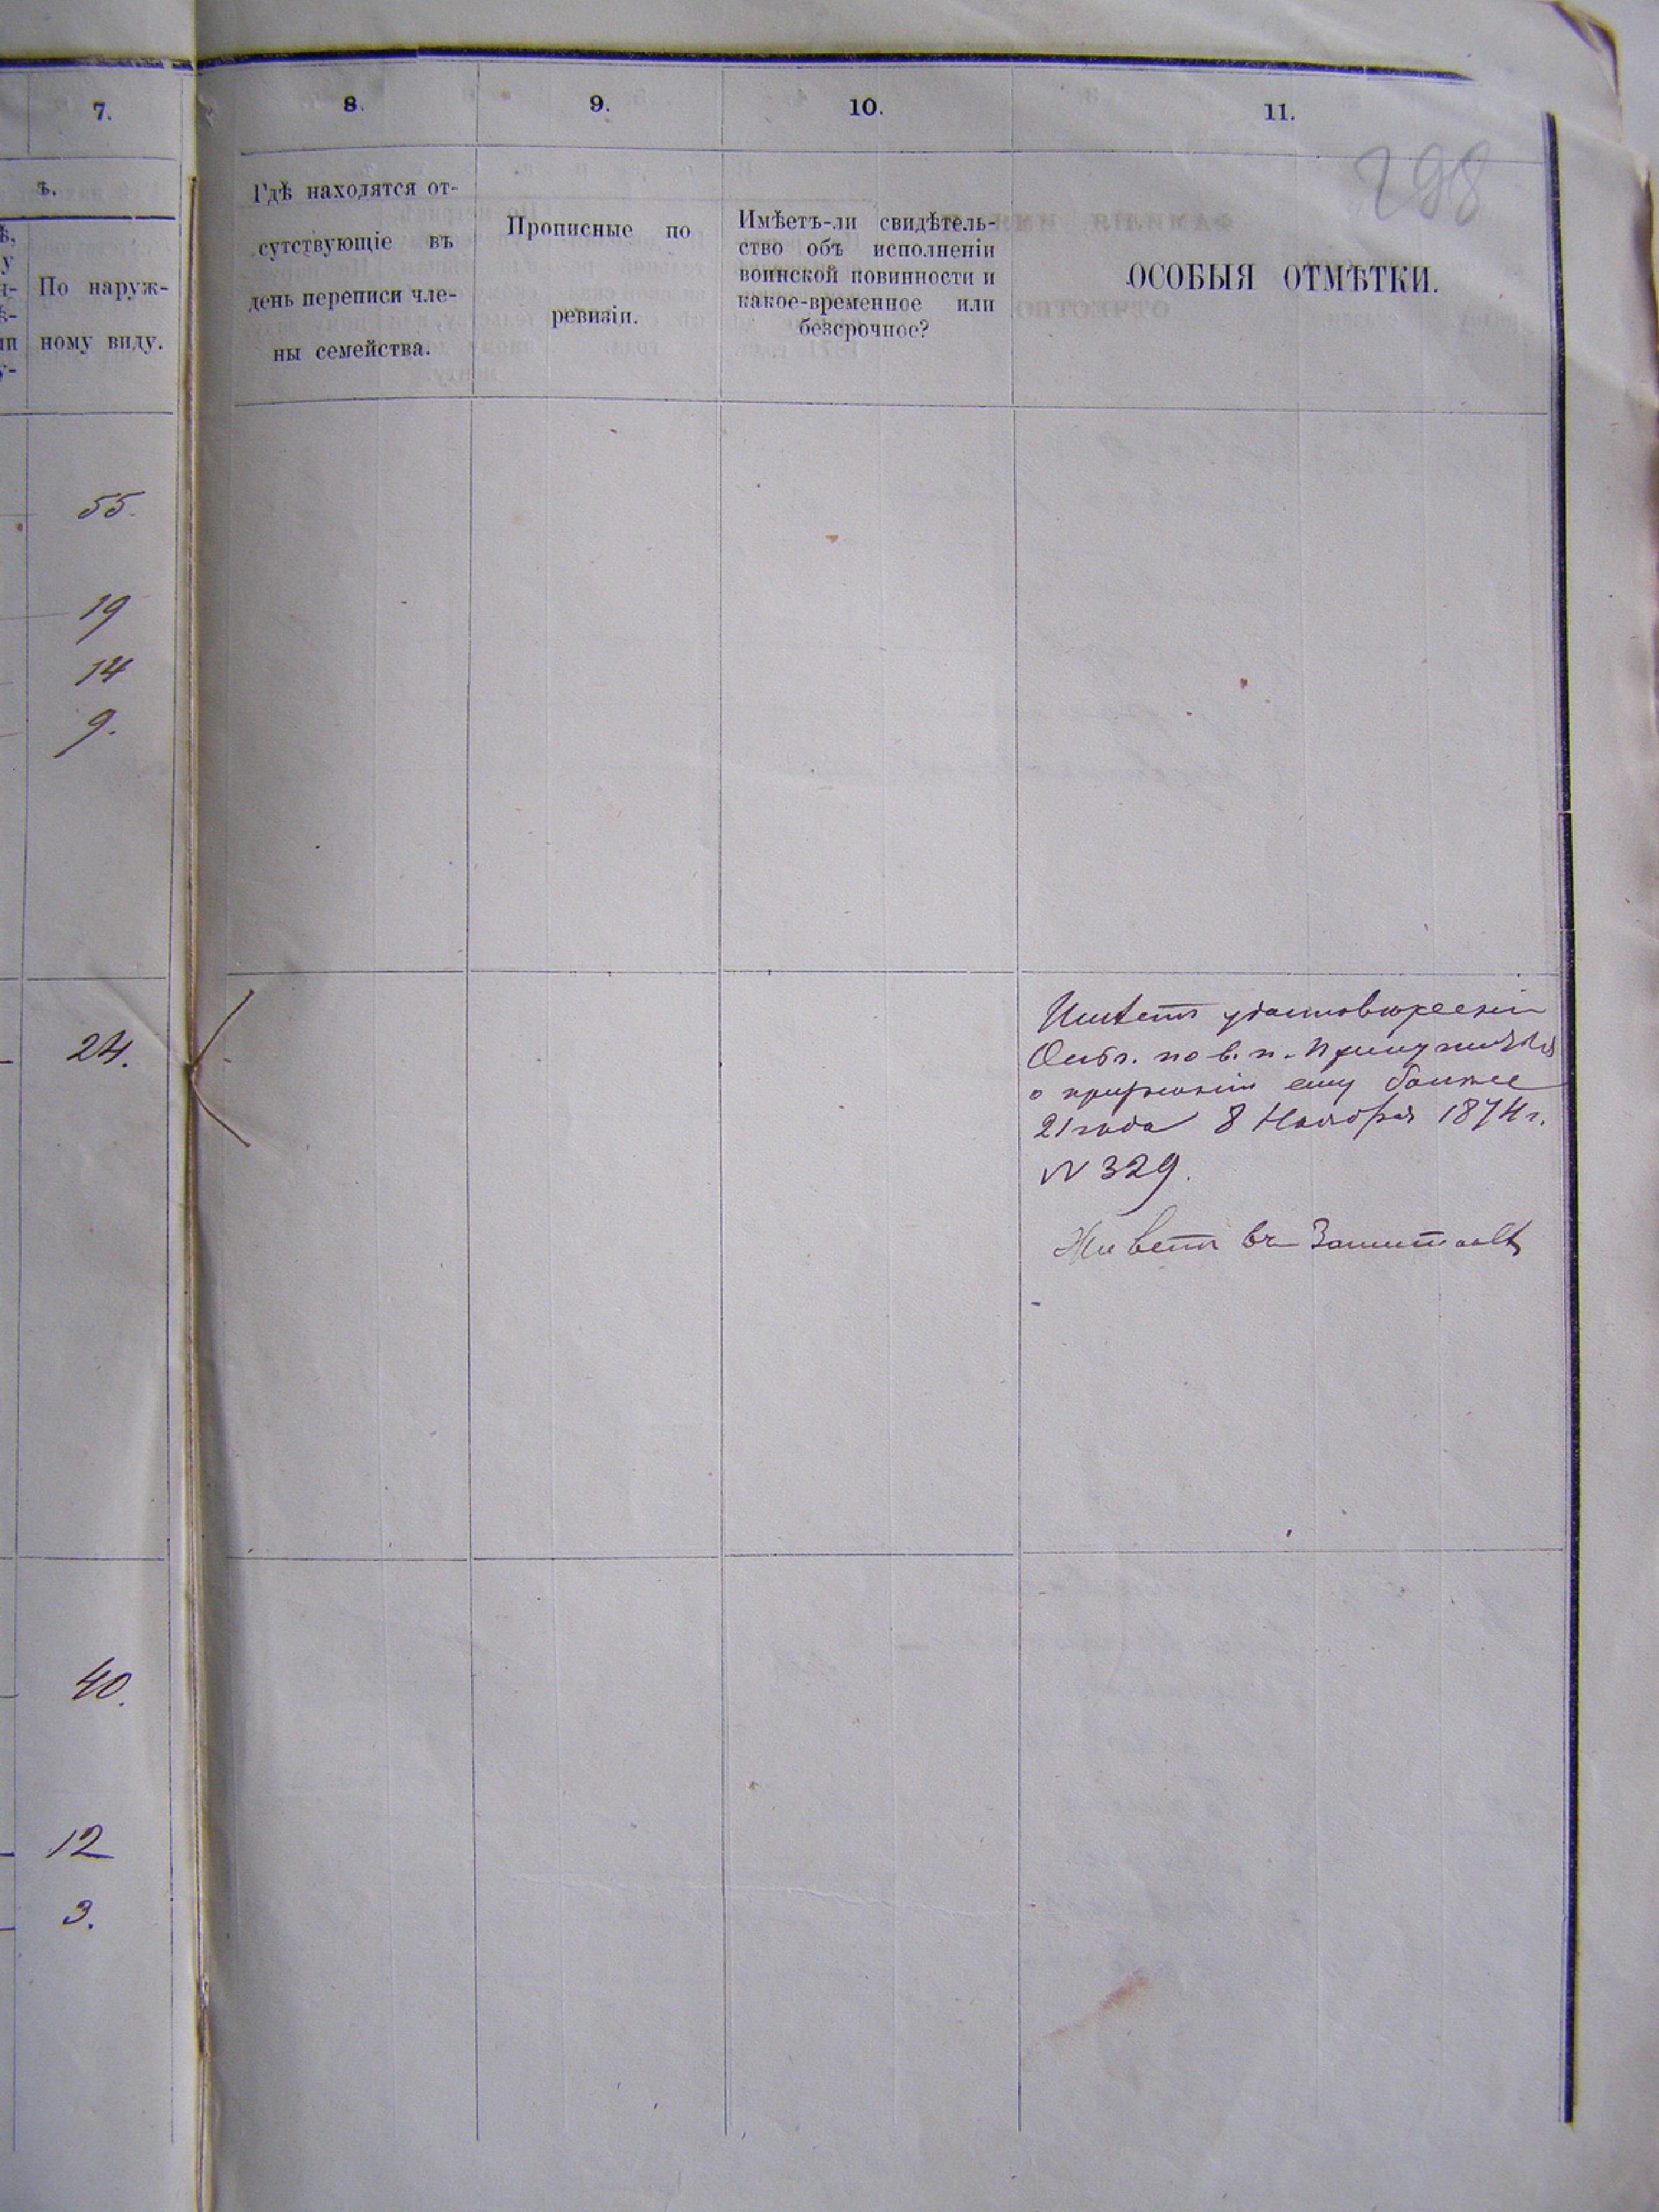 7.
8.
9.
10.
11.
298
ъ.
По наруж-
ному виду.
Гдѣ находятся от-
сутствующіе въ
день переписи чле-
ны семейства.
Прописные по
ревизіи.
Имѣетъ-ли свидѣтель-
ство объ исполненіи
воинской повинности и
какое-временное или
безсрочное?
ОСОБЫЯ ОТМѢТКИ.
55.
19
14
9.
24.
Имѣетъ удостовѣреніи
по в. п.
о ему более
21 года 8 Ноября 1874 г.
N 329.
Живетъ въ
40.
12
3.